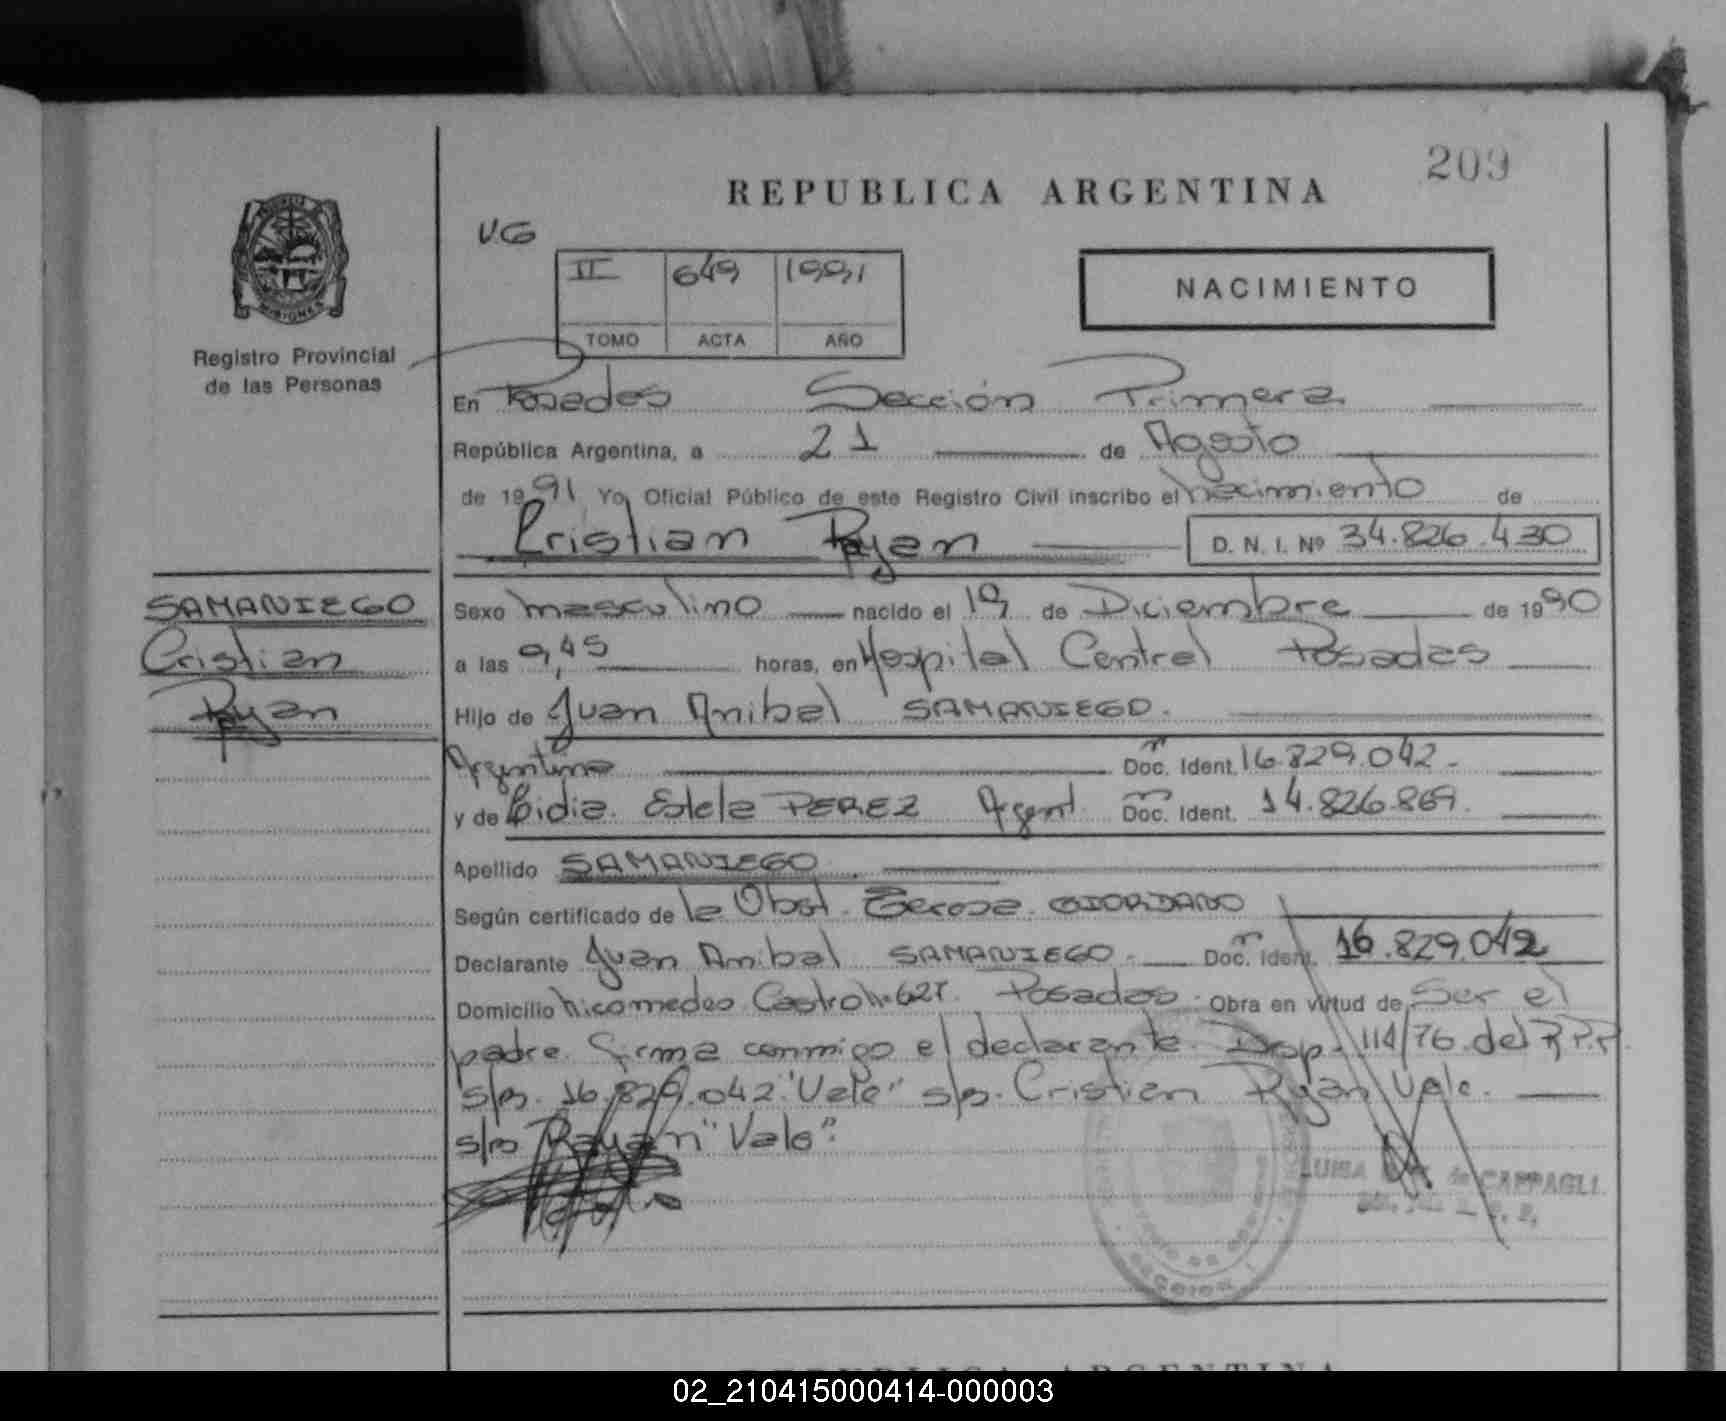 209
REPUBLICA ARGENTINA
V.G
II 649 1991
TOMO ACTA AÑO
NACIMIENTO
MISIONES
Registro Provincial
de las Personas
En Posadas Sección Primera
República Argentina, a 21 de Agosto
de 1991 Yo, Oficial Público de este Registro Civil inscribo el nacimiento de
Cristian Ryan D. N. I. Nº 34.826.430
SAMANIEGO
Cristian
Ryan
Sexo masculino nacido el 19 de Diciembre de 1990
a las 9,45 horas, en Hospital Central Posadas
Hijo de Juan Anibal SAMANIEGO.
Argentino Doc. Ident. 16.829.042.
y de Lidia Estela PEREZ Argent. Doc. Ident. 14.826.869.
Apellido SAMANIEGO.
Según certificado de la Obst. Teresa GIORDANO
Declarante Juan Anibal SAMANIEGO. Doc. Ident. 16.829.042
Domicilio Nicomedes Castro Nº 627. Posadas. Obra en virtud de Ser el
padre. Firma conmigo el declarante. Disp. 114/76 del R.P.P.
s/b. 16.829.042 "Vale" s/b. Cristian Ryan Vale.
s/b Rayan "Vale".
LUISA de CAPPAGLI
REPUBLICA ARGENTINA
02_210415000414-000003